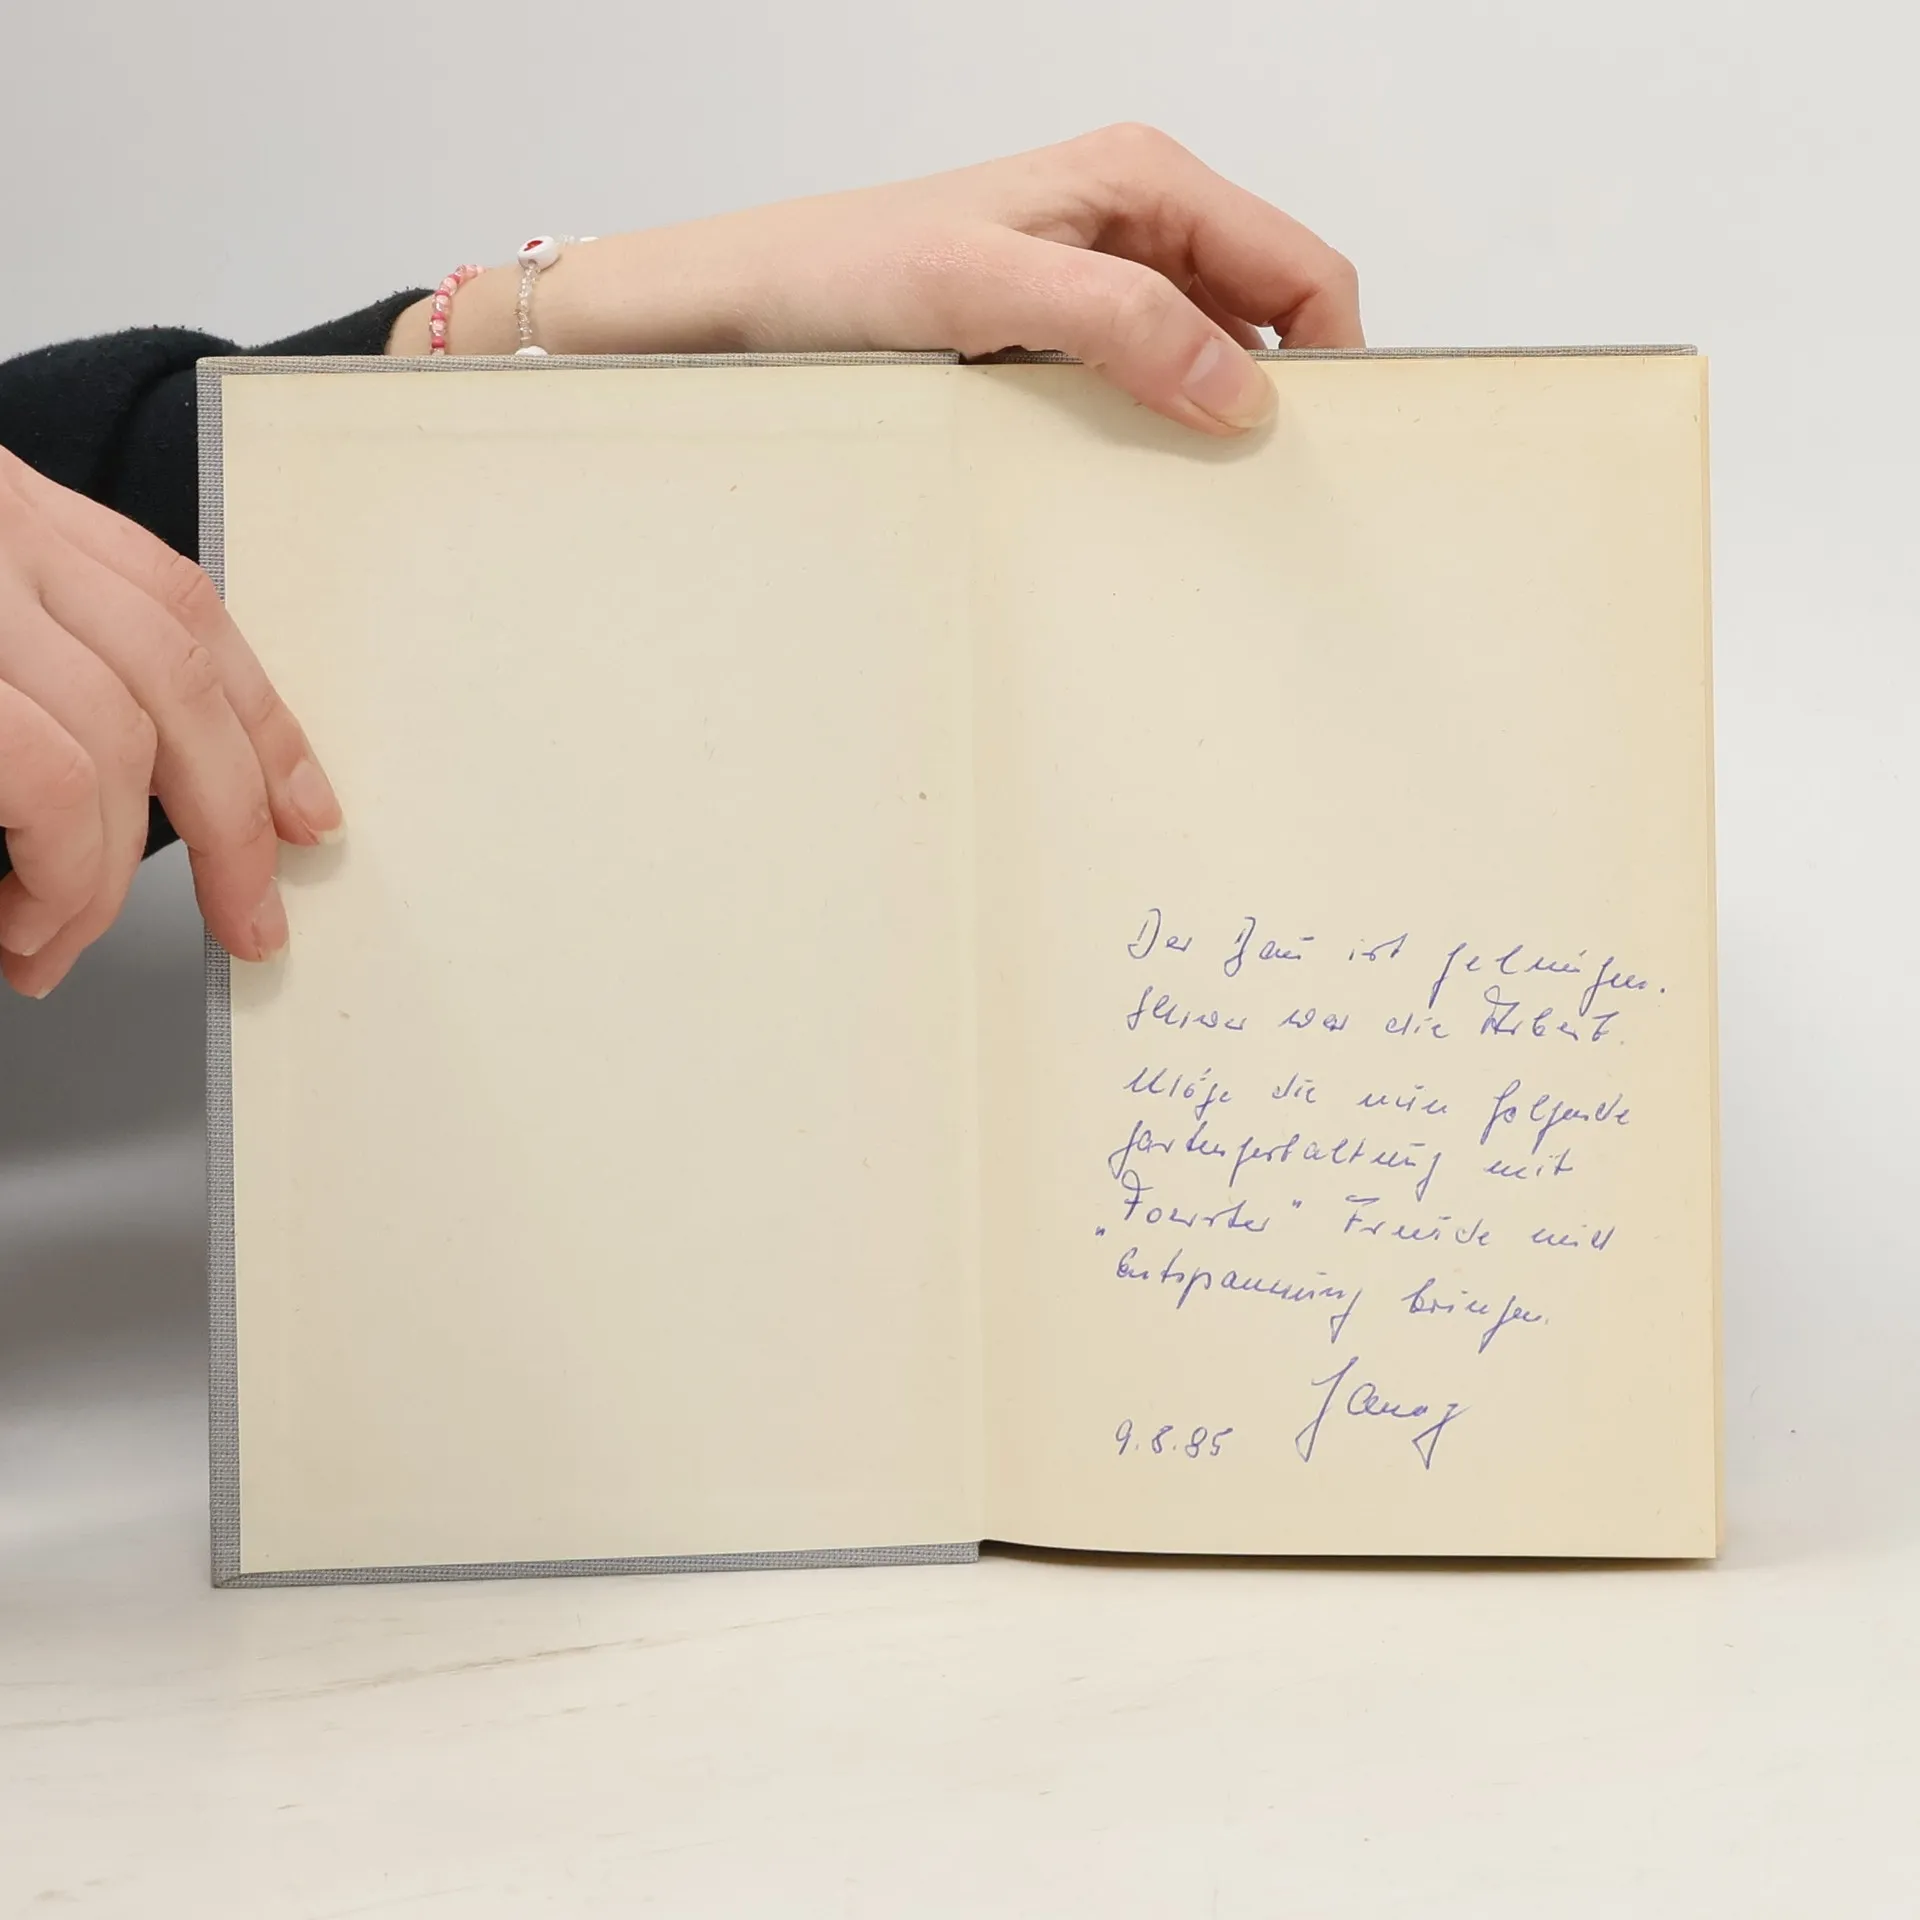 Der Bau ist gelungen.
Schwer war die Arbeit.
Möge die nun folgende
Gartengestaltung mit
„Foerster" Freude und
Entspannung bringen.
9.8.85